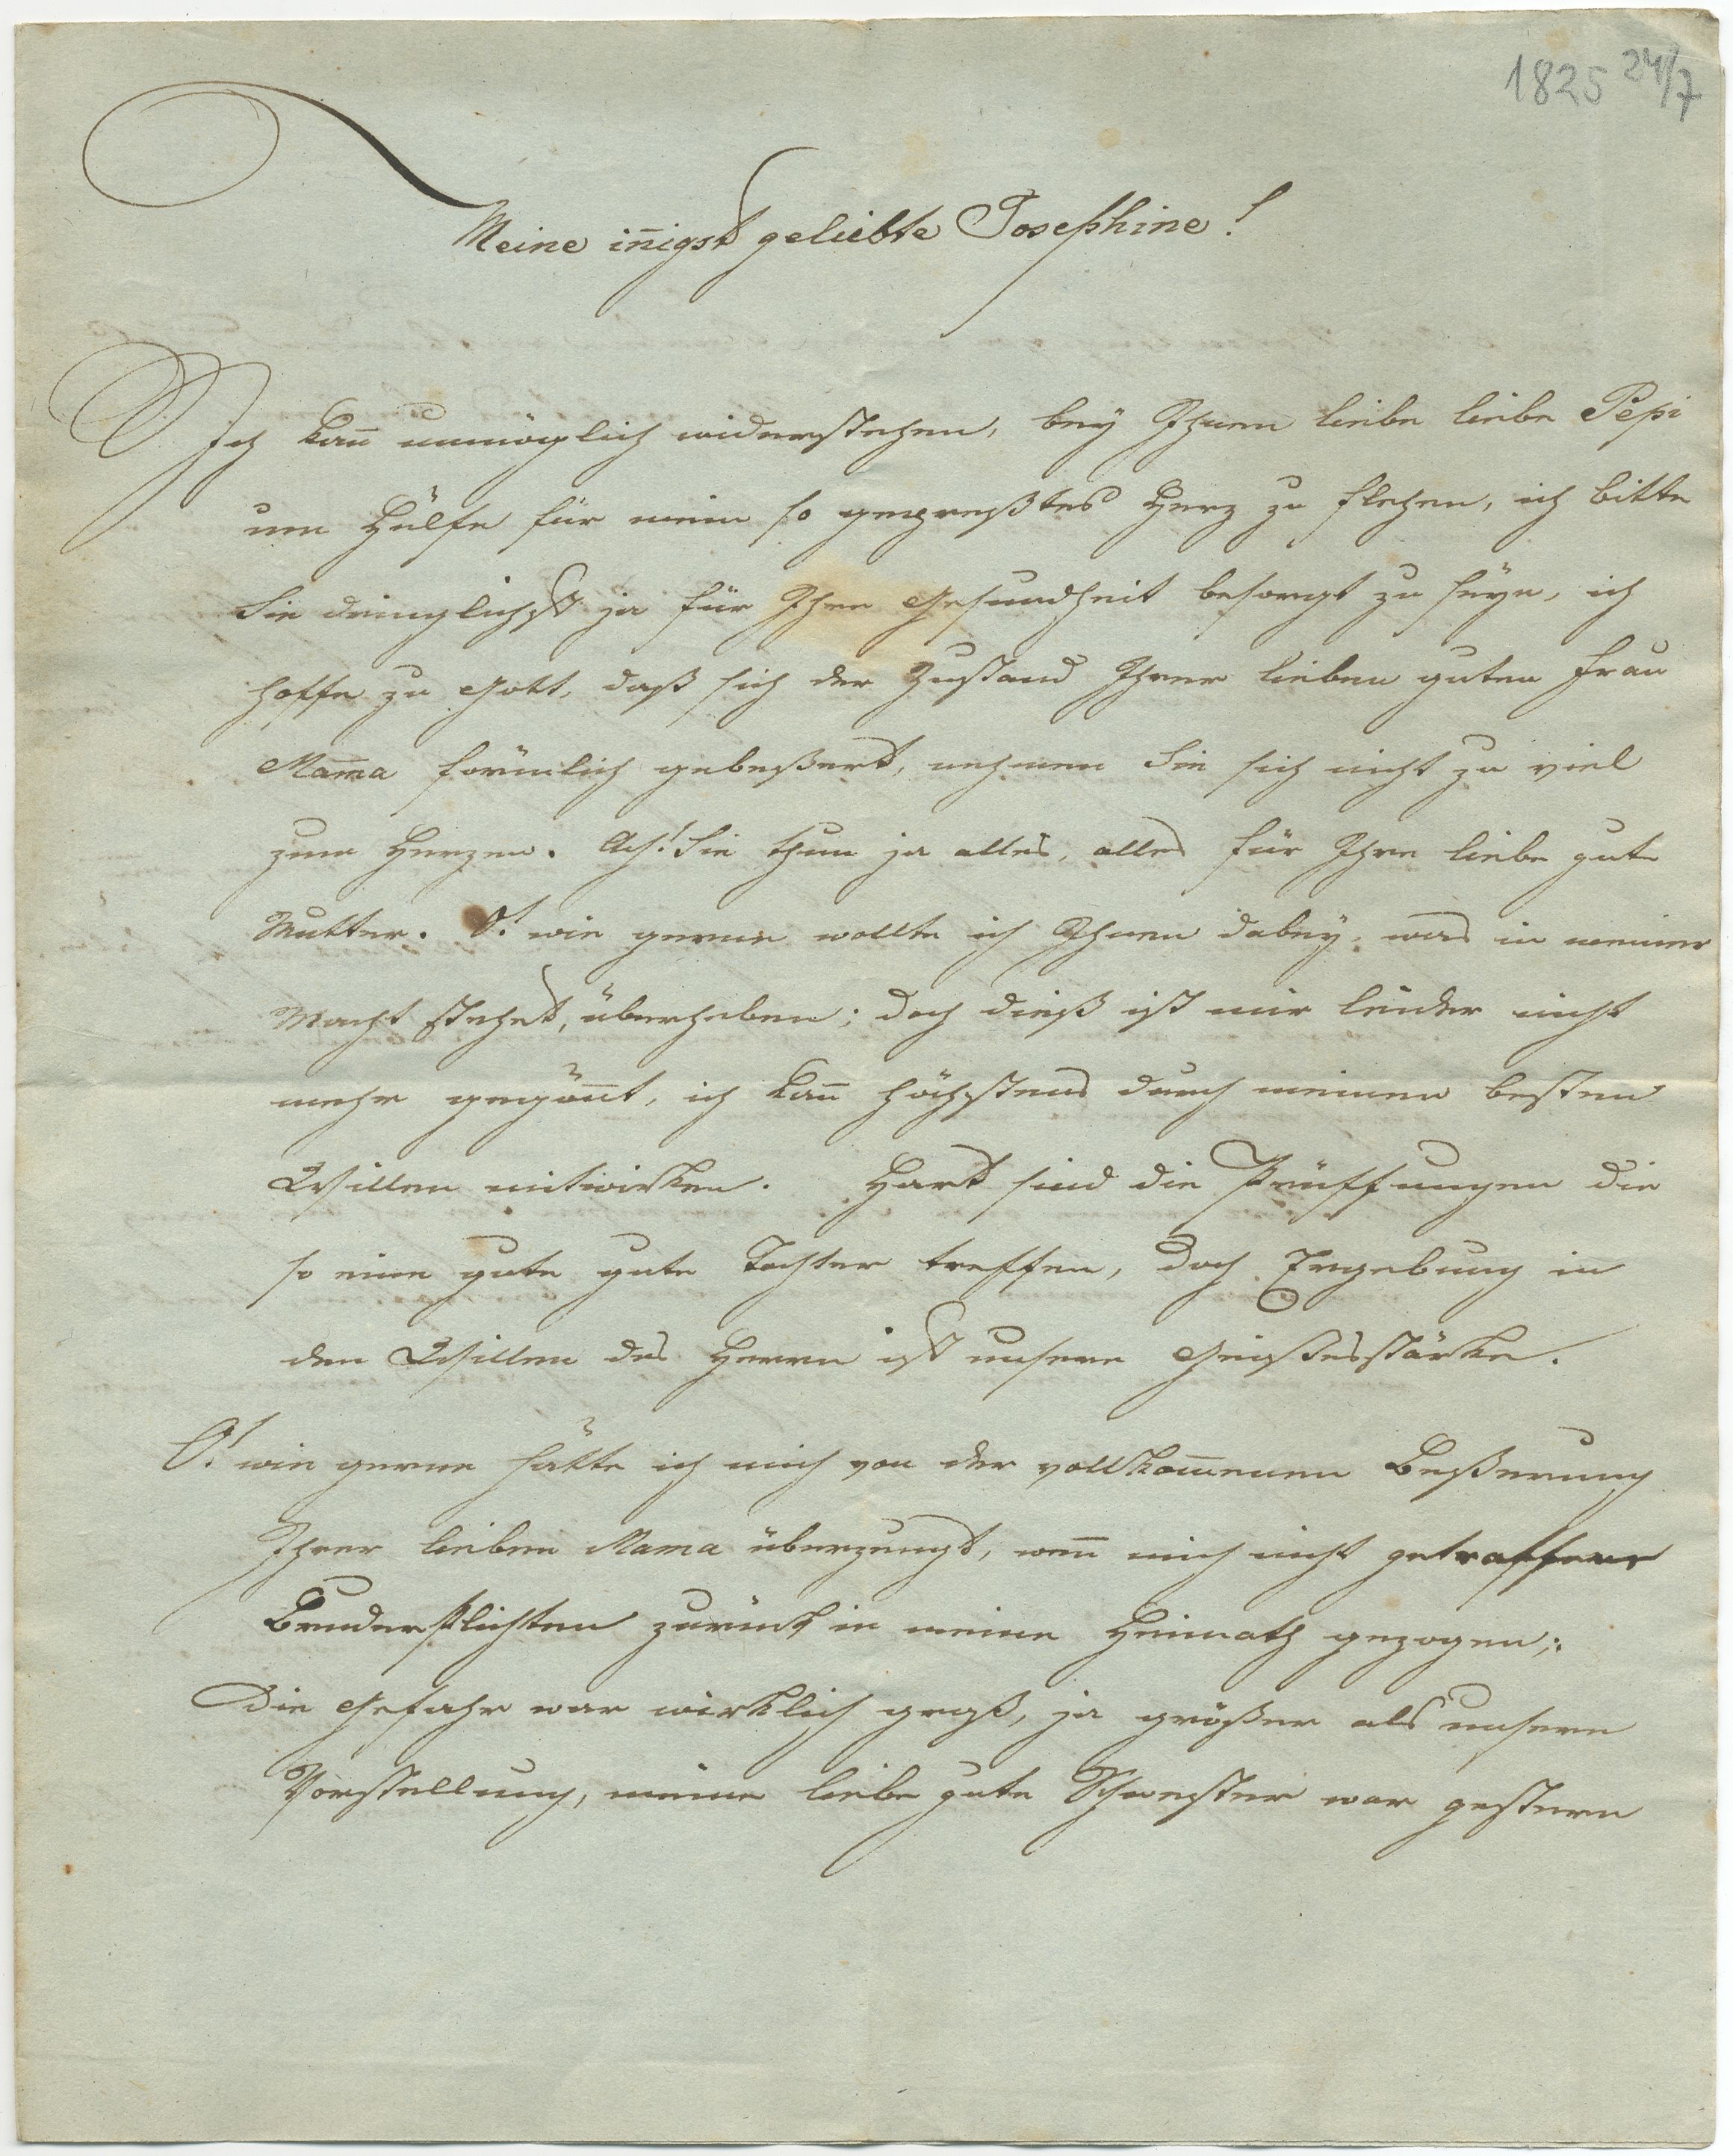 1825 24/7
Meine in̄igst geliebte Josephine!
Ich kan̄ unmöglich widerstehen, bey Ihnen liebe liebe Pepi
um Hülfe für mein so gepreßtes Herz zu flehen, ich bitte
Sie dringlichst ja für Ihre Gesundheit besorgt zu seyn, ich
hoffe zu Gott, daß sich der Zustand Ihrer lieben guten Frau
Mam̄a förmlich gebeßert, nehmen Sie sich nicht zu viel
zum Herzen. Ach! Sie thun ja alles, alles für Ihre liebe gute
Mutter. O! wie gerne wollte ich Ihnen dabey, was in meiner
Macht stehet, überheben; doch dieß ist mir leider nicht
mehr gegön̄t, ich kan̄ höchstens durch meinen besten
Willen mitwirken. Hart sind die Prüffungen die
so eine gute gute Tochter treffen, doch Ergebung in
den Willen des Herrn ist unsere Geistesstärke.
O! wie gerne hätte ich mich von der vollkom̄enen Beßerung
Ihrer lieben Mama überzeugt, wen̄ mich nicht
Bruderpflichten zurück in meine Heimath gezogen;
Die Gefahr war wirklich groß, ja größer als unsere
Vorstellung, meine liebe gute Schwester war gestern